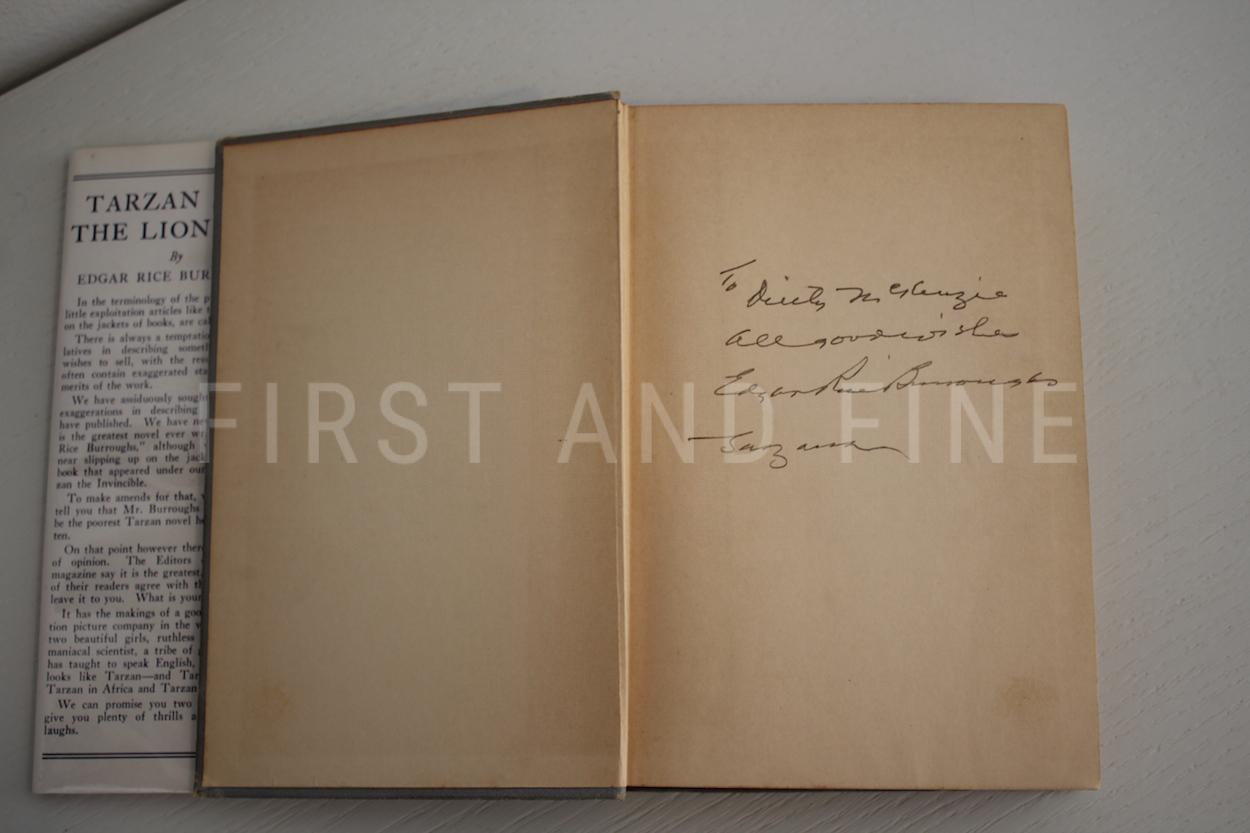 TARZAN
THE LION
By
EDGAR RICE BUR
In the terminology of the p
little exploitation articles like t
on the jackets of books, are cal
There is always a temptatio
latives in describing someth
wishes to sell, with the resu
often contain exaggerated sta
merits of the work.
We have assiduously sought
exaggerations in describing
have published. We have nev
is the greatest novel ever wr
Rice Burroughs," although
near slipping up on the jack
book that appeared under our
zan the Invincible.
To make amends for that,
tell you that Mr. Burroughs
be the poorest Tarzan novel he
ten.
On that point however ther
of opinion. The Editors
magazine say it is the greatest.
of their readers agree with th
leave it to you. What is your
It has the makings of a goo
tion picture company in the w
two beautiful girls, ruthless
maniacal scientist, a tribe of
has taught to speak English,
looks like Tarzan—and Tar
Tarzan in Africa and Tarzan
We can promise you two
give you plenty of thrills a
laughs.
To McKenzie
All good wishes
Edgar Rice Burroughs
Tarzana
FIRST AND FINE